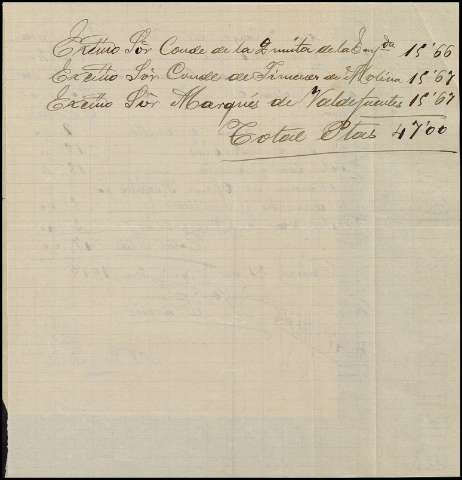 Excmo Sõr Conde de la Quinta de la Enjda 15'66
Excmo Sõr Conde de Jimenez de Molina 15'67
Excmo Sõr Marqués de Valdefuentes 15'67
Total Ptas 47'00